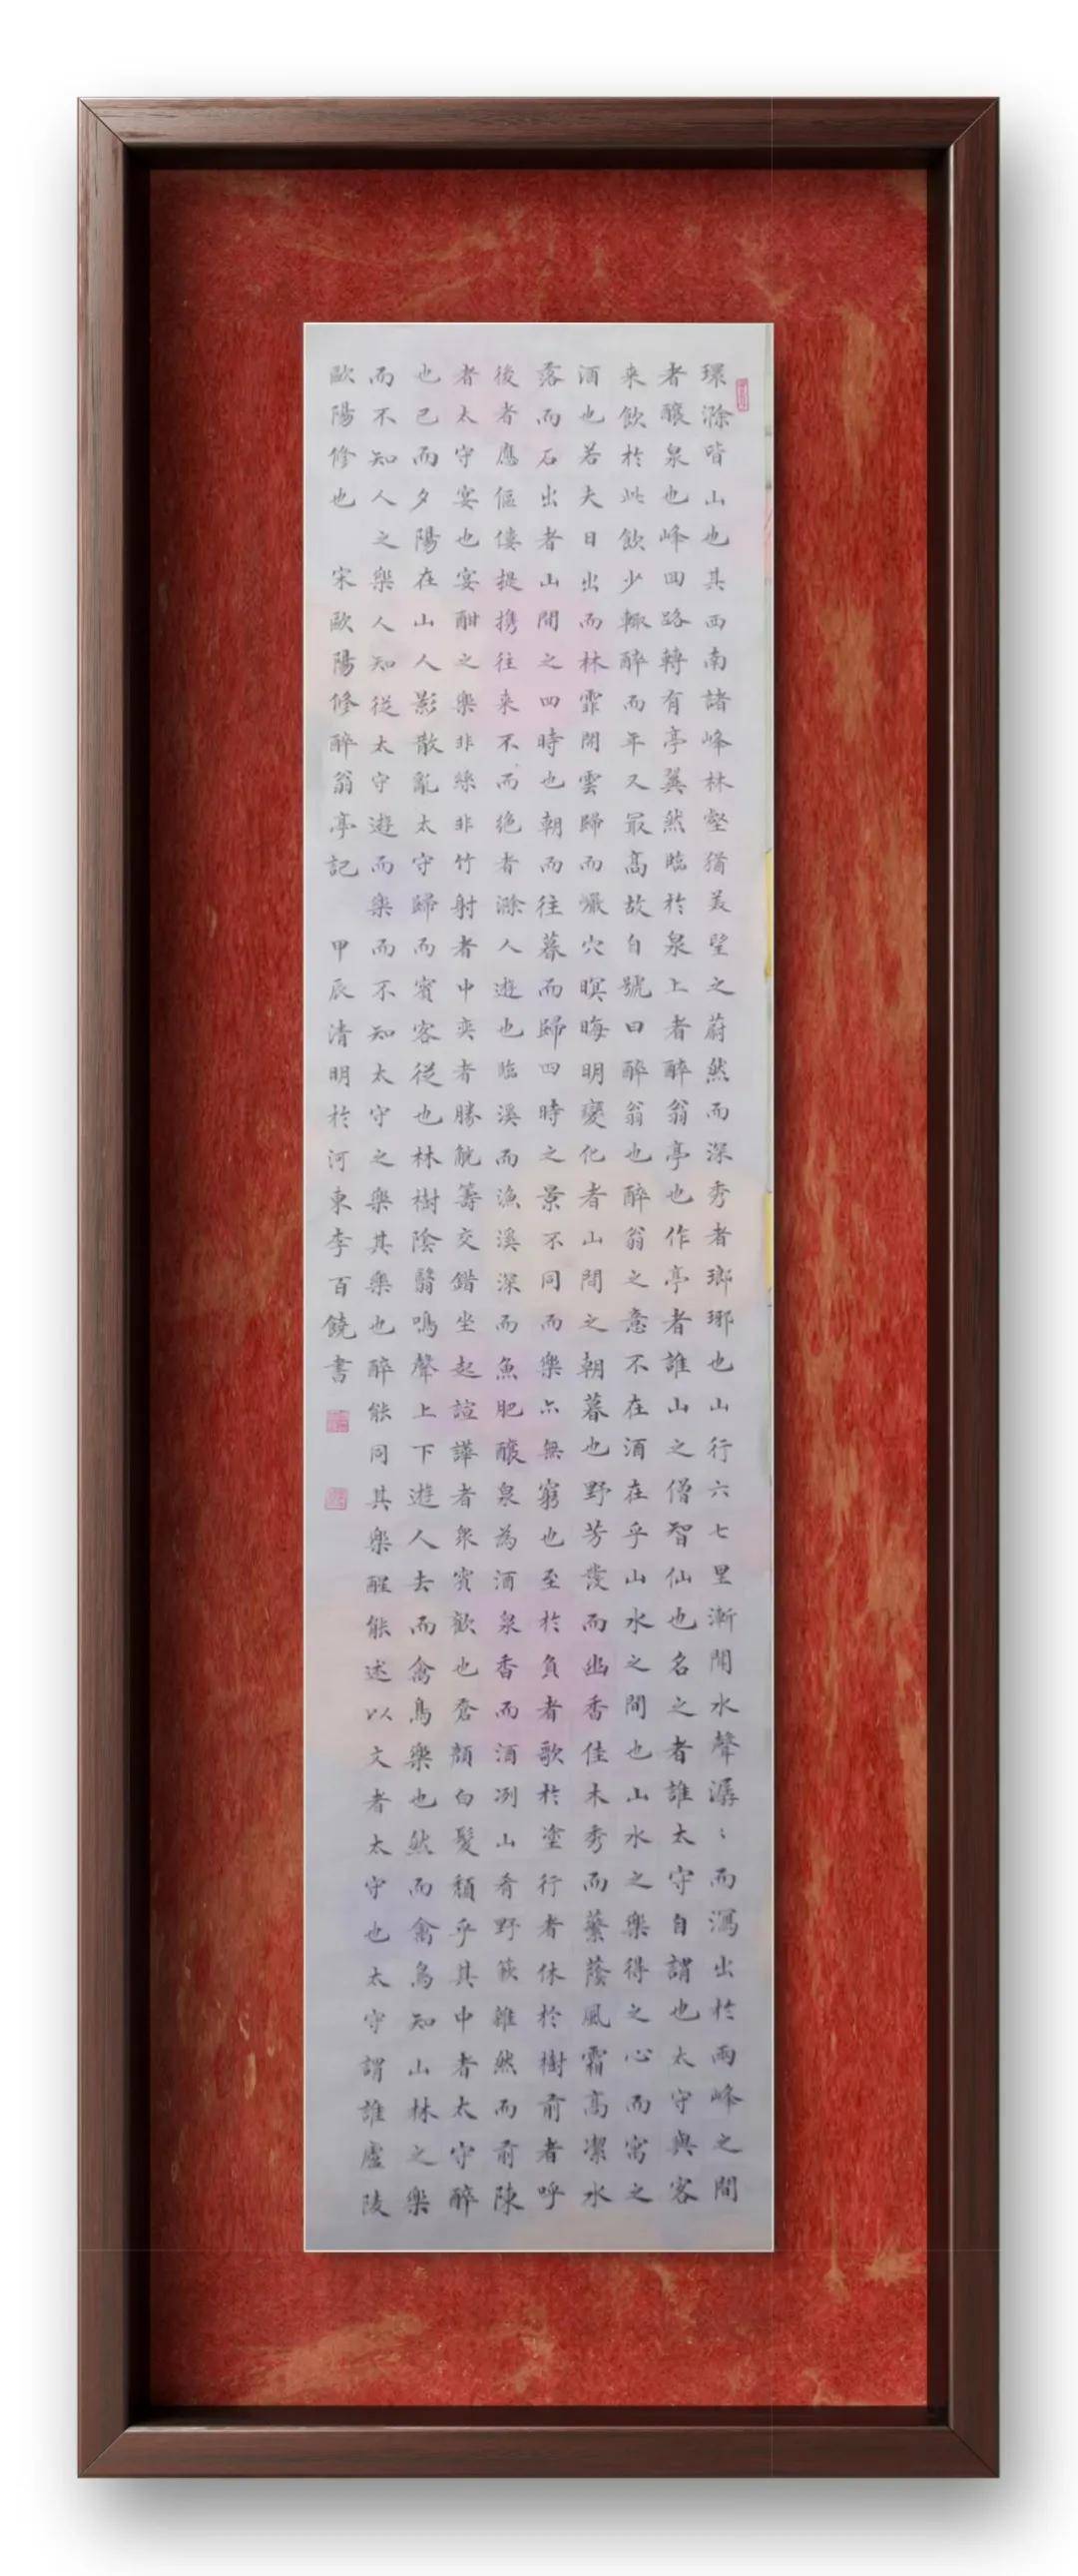 環滁皆山也其西南諸峰林壑猶美望之蔚然而深秀者瑯琊也山行六七里漸聞水聲潺〻而瀉出於兩峰之間
者釀泉也峰回路轉有亭翼然臨於泉上者醉翁亭也作亭者誰山之僧智仙也名之者誰太守自謂也太守與客
来飲於此飲少輒醉而年又最高故自號曰醉翁也醉翁之意不在酒在乎山水之間也山水之樂得之心而寓之
酒也若夫日出而林霏開雲歸而巖穴暝晦明變化者山間之朝暮也野芳發而幽香佳木秀而蘩蔭風霜高潔水
落而石出者山間之四時也朝而往暮而歸四時之景不同而樂亦無窮也至於負者歌於塗行者休於樹前者呼
後者應傴僂提携往来不而绝者滁人遊也臨溪而漁溪深而魚肥釀泉為酒泉香而酒冽山肴野簌雜然而前陳
者太守宴也宴酣之樂非絲非竹射者中奕者勝觥籌交錯坐起諠譁者衆賓歡也蒼顏白髮頹乎其中者太守醉
也已而夕陽在山人影散亂太守歸而賓客從也林樹陰翳鳴聲上下遊人去而禽鳥樂也然而禽鳥知山林之樂
而不知人之樂人知從太守遊而樂而不知太守之樂其樂也醉能同其樂醒能述以文者太守也太守謂誰廬陵
歐陽修也 宋歐陽修醉翁亭記 甲辰清明於河東李百饒書